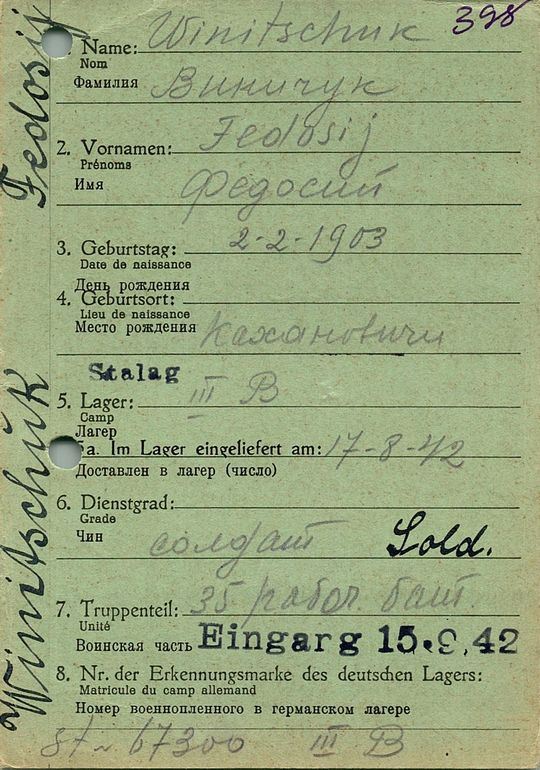 398
Name: Winitschuk
Nom
Фамилия Виничук
2. Vornamen: Fedosij
Prénoms
Имя Федосий
3. Geburtstag: 2-2-1903
Date de naissance
День рождения
4. Geburtsort:
Lieu de naissance
Место рождения Кахановичи
Stalag
5. Lager: III B
Camp
Лагер
5a. Im Lager eingeliefert am: 17-8-42
Доставлен в лагер (число)
6. Dienstgrad:
Grade
Чин солдат Sold.
7. Truppenteil: 35 рабоч. бат.
Unité
Воинская часть Eingarg 15.9.42
8. Nr. der Erkennungsmarke des deutschen Lagers:
Matricule du camp allemand
Номер военнопленного в германском лагере
67300 III B
Winitschuk Fedosij